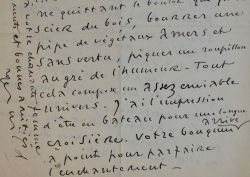 ne quittant le boulot que pour
scier du bois, bourrer une
pipe de végétaux amers et
sans vertu, piquer un roupillon
au gré de l'humeur. Tout
cela compose un assez enviable
univers. J'ai l'impression
d'être en bateau pour une longue
croisière. Votre bouquin arrive
à point pour parfaire
l'enchantement.